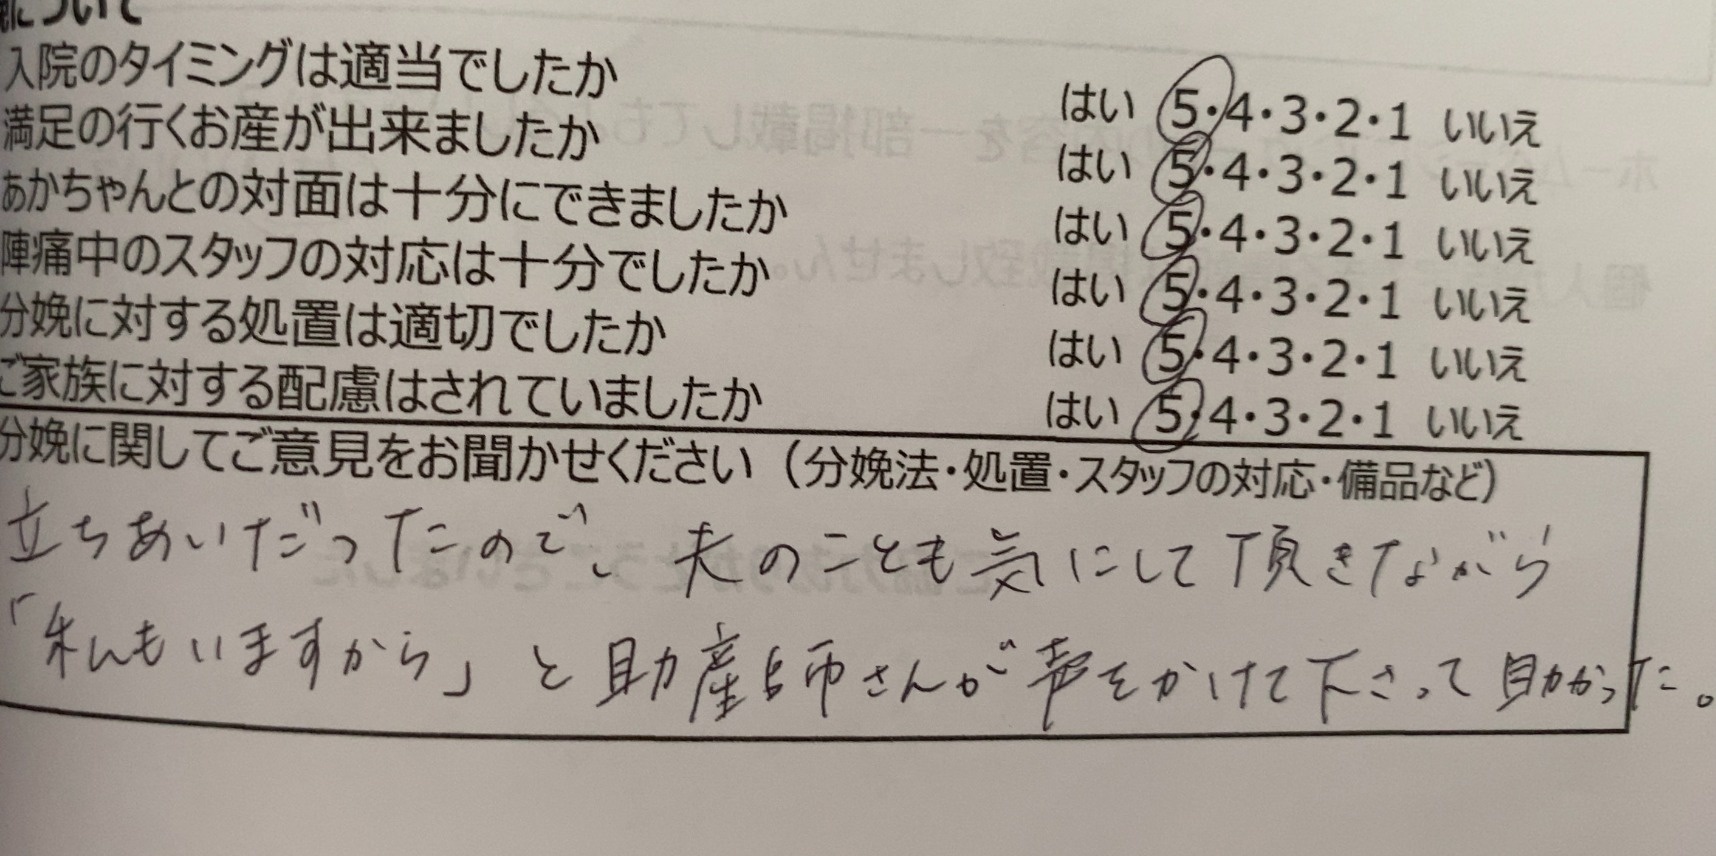 について
入院のタイミングは適当でしたか はい 5・4・3・2・1 いいえ
満足の行くお産が出来ましたか はい 5・4・3・2・1 いいえ
あかちゃんとの対面は十分にできましたか はい 5・4・3・2・1 いいえ
陣痛中のスタッフの対応は十分でしたか はい 5・4・3・2・1 いいえ
分娩に対する処置は適切でしたか はい 5・4・3・2・1 いいえ
ご家族に対する配慮はされていましたか はい 5・4・3・2・1 いいえ
分娩に関してご意見をお聞かせください（分娩法・処置・スタッフの対応・備品など）
立ちあいだったので、夫のことも気にして頂きながら
「私もいますから」と助産師さんが声をかけて下さって助かった。